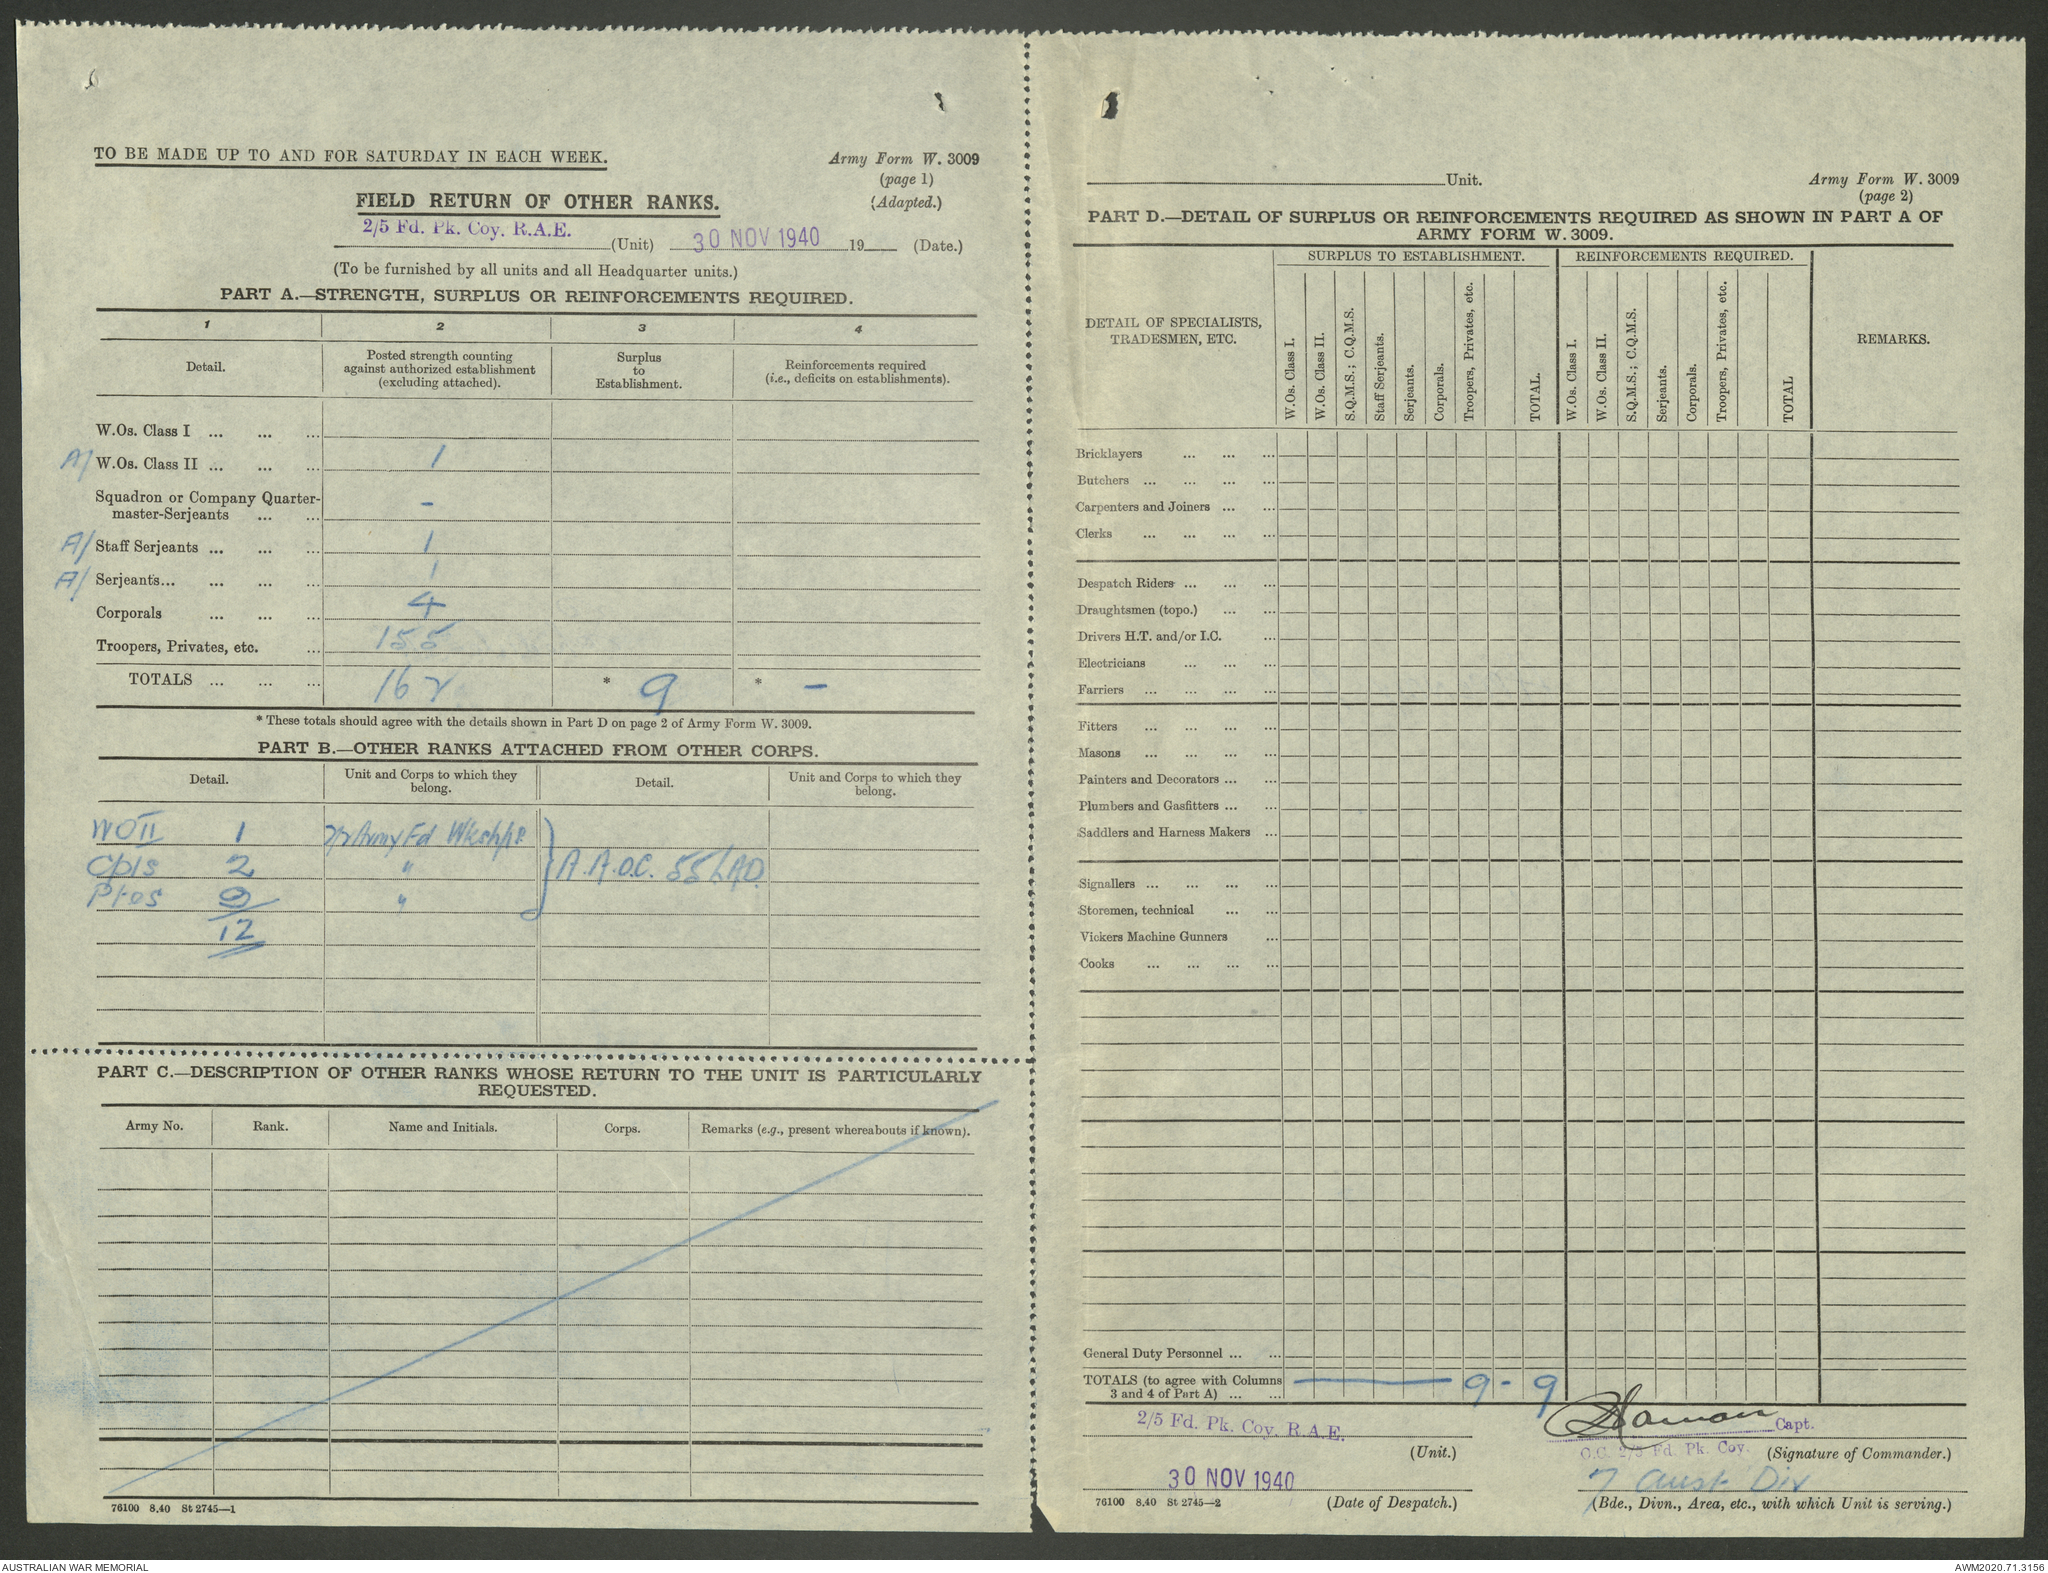 TO BE MADE UP TO AND FOR SATURDAY IN EACH WEEK.
Army Form W. 3009
(page 1)
(Adapted.)
FIELD RETURN OF OTHER RANKS.
2/5 Fd. Pk. Coy. R.A.E. (Unit) 30 NOV 1940 19 (Date.)
(To be furnished by all units and all Headquarter units.)
PART A.—STRENGTH, SURPLUS OR REINFORCEMENTS REQUIRED.
1 2 3 4
Detail. Posted strength counting against authorized establishment (excluding attached). Surplus to Establishment. Reinforcements required (i.e., deficits on establishments).
W.Os. Class I ... ... ...
A/ W.Os. Class II ... ... ... 1
Squadron or Company Quarter-
master-Serjeants ... ... -
A/ Staff Serjeants ... ... ... 1
A/ Serjeants... ... ... ... 1
Corporals ... ... ... 4
Troopers, Privates, etc. ... 155
TOTALS ... ... ... 162 * 9 * -
* These totals should agree with the details shown in Part D on page 2 of Army Form W. 3009.
PART B.—OTHER RANKS ATTACHED FROM OTHER CORPS.
Detail. Unit and Corps to which they belong. Detail. Unit and Corps to which they belong.
WO II 1 2/2 Army Fd Wkshps.
Cpls 2 " } A.A.O.C. 55 LAD.
Ptes 9 "
12
PART C.—DESCRIPTION OF OTHER RANKS WHOSE RETURN TO THE UNIT IS PARTICULARLY
REQUESTED.
Army No. Rank. Name and Initials. Corps. Remarks (e.g., present whereabouts if known).
76100 8.40 St 2745—1
Unit.
Army Form W. 3009
(page 2)
PART D.—DETAIL OF SURPLUS OR REINFORCEMENTS REQUIRED AS SHOWN IN PART A OF
ARMY FORM W. 3009.
SURPLUS TO ESTABLISHMENT. REINFORCEMENTS REQUIRED.
DETAIL OF SPECIALISTS, TRADESMEN, ETC. W.Os. Class I. W.Os. Class II. S.Q.M.S.; C.Q.M.S. Staff Serjeants. Serjeants. Corporals. Troopers, Privates, etc. TOTAL. W.Os. Class I. W.Os. Class II. S.Q.M.S.; C.Q.M.S. Serjeants. Corporals. Troopers, Privates, etc. TOTAL REMARKS.
Bricklayers ... ... ...
Butchers ... ... ... ...
Carpenters and Joiners ... ...
Clerks ... ... ... ...
Despatch Riders ... ... ...
Draughtsmen (topo.) ... ...
Drivers H.T. and/or I.C. ...
Electricians ... ... ...
Farriers ... ... ... ...
Fitters ... ... ... ...
Masons ... ... ... ...
Painters and Decorators ... ...
Plumbers and Gasfitters ... ...
Saddlers and Harness Makers ...
Signallers ... ... ... ...
Storemen, technical ... ...
Vickers Machine Gunners ...
Cooks ... ... ... ...
General Duty Personnel ... ...
TOTALS (to agree with Columns
3 and 4 of Part A) ... ... — 9 - 9
2/5 Fd. Pk. Coy. R.A.E. Capt.
(Unit.) O.C. 2/5 Fd. Pk. Coy. (Signature of Commander.)
30 NOV 1940 7 Aust Div
76100 8.40 St 2745—2 (Date of Despatch.) (Bde., Divn., Area, etc., with which Unit is serving.)
AUSTRALIAN WAR MEMORIAL AWM2020.71.3156